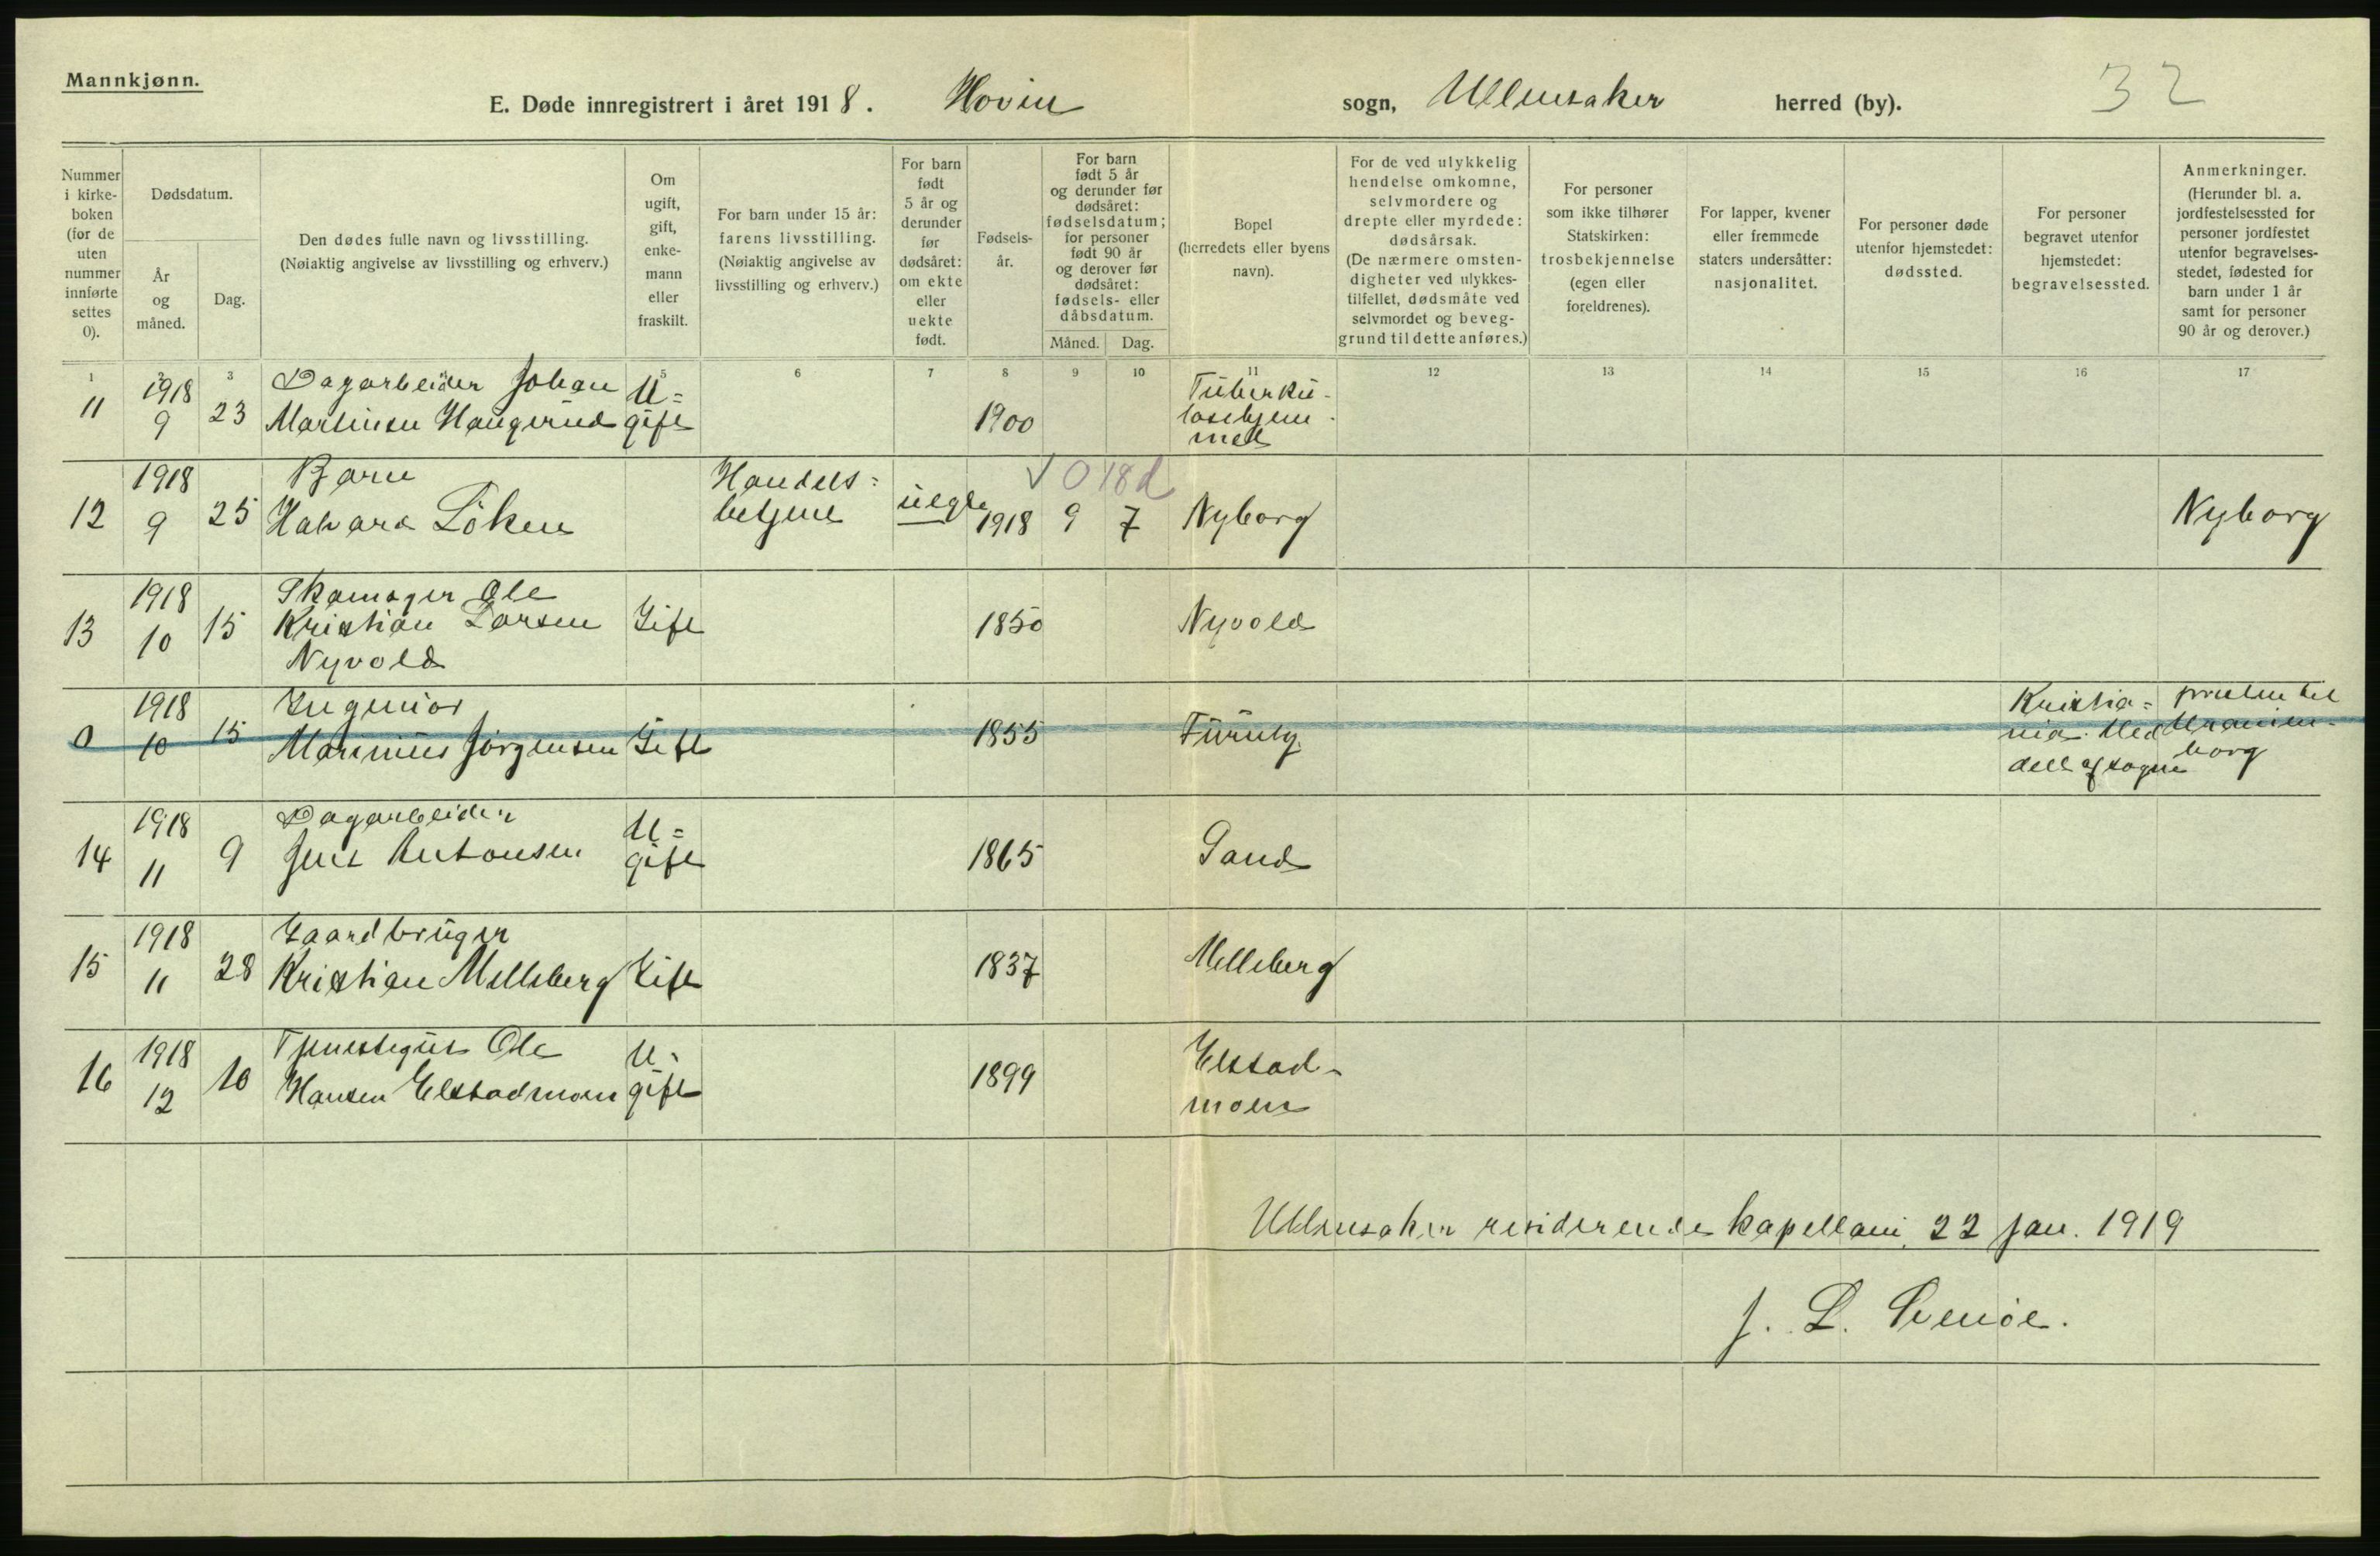 Mannkjønn.
E. Døde innregistrert i året 1918. Hovin sogn, Ullensaker herred (by). 32
Nummer
i kirke-
boken
(for de
uten
nummer
innførte
settes
0).
Dødsdatum.
År
og
måned.
Dag.
Den dødes fulle navn og livsstilling.
(Nøiaktig angivelse av livsstilling og erhverv.)
Om
ugift,
gift,
enke-
mann
eller
fraskilt.
For barn under 15 år:
farens livsstilling.
(Nøiaktig angivelse av
livsstilling og erhverv.)
For barn
født
5 år og
derunder
før
dødsåret:
om ekte
eller
uekte
født.
Fødsels-
år.
For barn
født 5 år
og derunder før
dødsåret:
fødselsdatum;
for personer
født 90 år
og derover før
dødsåret:
fødsels- eller
dåbsdatum.
Måned. Dag.
Bopel
(herredets eller byens
navn).
For de ved ulykkelig
hendelse omkomne,
selvmordere og
drepte eller myrdede:
dødsårsak.
(De nærmere omsten-
digheter ved ulykkes-
tilfellet, dødsmåte ved
selvmordet og beveg-
grund til dette anføres.)
For personer
som ikke tilhører
Statskirken:
trosbekjennelse
(egen eller
foreldrenes).
For lapper, kvener
eller fremmede
staters undersåtter:
nasjonalitet.
For personer døde
utenfor hjemstedet:
dødssted.
For personer
begravet utenfor
hjemstedet:
begravelsessted.
Anmerkninger.
(Herunder bl. a.
jordfestelsessted for
personer jordfestet
utenfor begravelses-
stedet, fødested for
barn under 1 år
samt for personer
90 år og derover.)
1 2 3 5 6 7 8 9 10 11 12 13 14 15 16 17
11 1918 9 23 Dagarbeider Johan
Martinsen Haugerud U=
gift 1900 Tuberku-
losehjem-
met
12 1918 9 25 Barn
Halvard Löken Handels=
betjent uegte 1918 9 7 Nyborg Nyborg
√ 0 18 d
13 1918 10 15 Skomager Ole
Kristian Larsen
Nyvold Gift 1850 Nyvold
0 1918 10 15 Ingeniør
Marinius Jörgensen Gift 1855 Furuly Kristia=
nia. Med
dell af sogne presten til
Uranien-
borg
14 1918 11 9 Dagarbeider
Jens Antonsen U=
gift 1865 Sand
15 1918 11 28 Gaardbruger
Kristian Melleberg Gift 1837 Melleberg
16 1918 12 10 Tjenestegut Ole
Hansen Elstadmoen U-
gift 1899 Elstad-
moen
Ullensaker residerende kapellani, 22 jan. 1919
J. L.